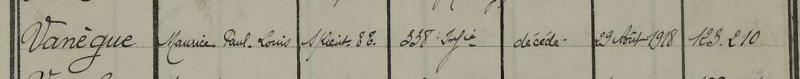 Vanègue Maurice Paul Louis S/lieut. 338e Infie décédé 29 Août 1918 123.210